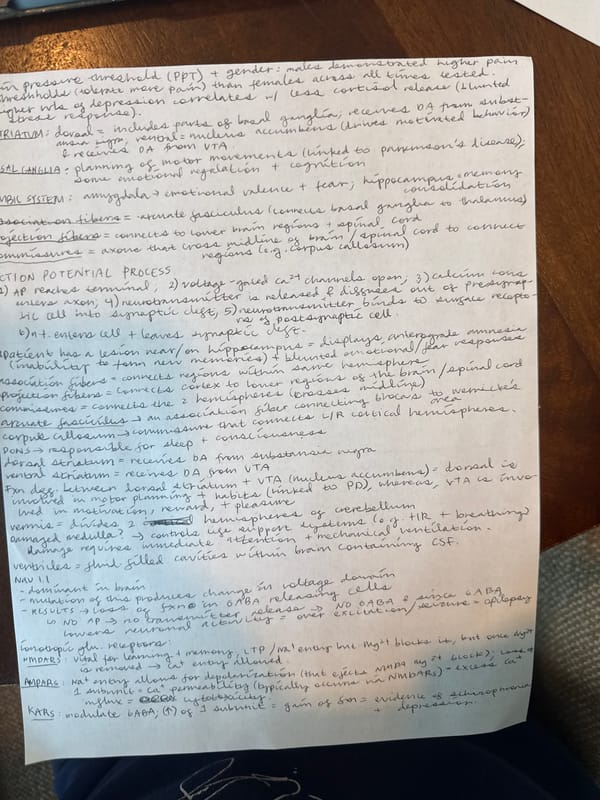 in pressure threshold (PPT) + gender: males demonstrated higher pain
thresholds (tolerate more pain) than females across all times tested.
higher lvls of depression correlates w/ less cortisol release (blunted
stress response).
STRIATUM: dorsal = includes parts of basal ganglia; receives DA from subst-
antia nigra; ventral = nucleus accumbens (drives motivated behavior)
& receives DA from VTA
SAL GANGLIA: planning of motor movements (linked to parkinson's disease),
some emotional regulation + cognition
MBIC SYSTEM: amygdala → emotional valence + fear; hippocampus = memory
consolidation
association fibers = arcuate fasciculus (connects basal ganglia to thalamus)
rojection fibers = connects to lower brain regions + spinal cord
ommissures = axons that cross midline of brain/spinal cord to connect
regions (e.g. corpus callosum)
CTION POTENTIAL PROCESS
1) AP reaches terminal; 2) voltage-gated Ca2+ channels open; 3) calcium ions
enters axon; 4) neurotransmitter is released & diffuses out of presynap-
tic cell into synaptic cleft; 5) neurotransmitter binds to surface recepto-
rs of postsynaptic cell.
6) n.t. enters cell + leaves synaptic cleft.
Patient has a lesion near/on hippocampus = displays anterograde amnesia
(inability to form new memories) + blunted emotional/fear responses
association fibers = connects regions within same hemisphere
projection fibers = connects cortex to lower regions of the brain/spinal cord
commissures = connects the 2 hemispheres (crosses midline)
arcuate fasciculus → an association fiber connecting blocas to wernicke's
area
corpus callosum → commissure that connects L/R cortical hemispheres.
PONS → responsible for sleep + consciousness
dorsal striatum = receives DA from substansia nigra
ventral striatum = receives DA from VTA
Fxn diff between dorsal striatum + VTA (nucleus accumbens) = dorsal is
involved in motor planning + habits (linked to PD), whereas, VTA is invo-
lved in motivation, reward, + pleasure
vermis = divides 2 hemispheres of cerebellum
Damaged medulla? → controls life support systems (e.g. HR + breathing)
damage requires immediate attention + mechanical ventilation.
ventricles = fluid filled cavities within brain containing CSF.
Nav 1.1
- dominant in brain
- mutation of this produces change in voltage domain
- RESULTS → loss of fxn in GABA releasing cells
↳ NO AP → no transmitter release → NO GABA & since GABA
lowers neuronal activity = over excitation/seizure = epilepsy
Ionotropic glu. receptors:
NMDARs: vital for learning + memory, LTP / Na+ entry but Mg2+ blocks it, but once Mg2+
is removed → Ca2+ entry allowed
AMPARs: Na+ entry allows for depolarization (that ejects NMDA Mg2+ block); loss of
1 subunit = Ca2+ permeability (typically occurs via NMDARs) = excess Ca2+
influx = cytotoxicity
KARs: modulate GABA; (↑) of 1 subunit = gain of fxn = evidence of schizophrenia
+ depression.